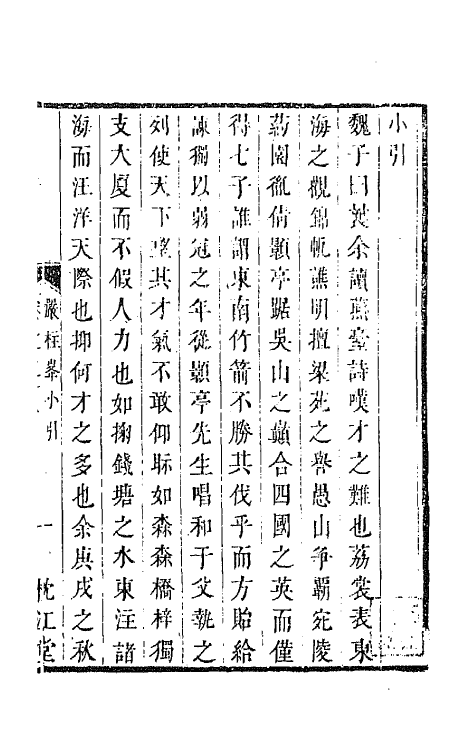 小引
魏子曰兹余讀燕臺詩嘆才之難也荔裳表東
海之觀錦帆譙明擅梁苑之譽愚山爭覇宛陵
葯園胤倩顥亭踞吳山之巓合四國之英而僅
得七子誰謂東南竹箭不勝其伐乎而方貽給
諫獨以弱冠之年從顥亭先生唱和于父執之
列使天下望其才氣不敢仰眎如森森橋梓獨
支大厦而不假人力也如掬錢塘之水東注諸
海而汪洋天際也抑何才之多也余庚戌之秋
嚴柱峯小引
一
枕江堂